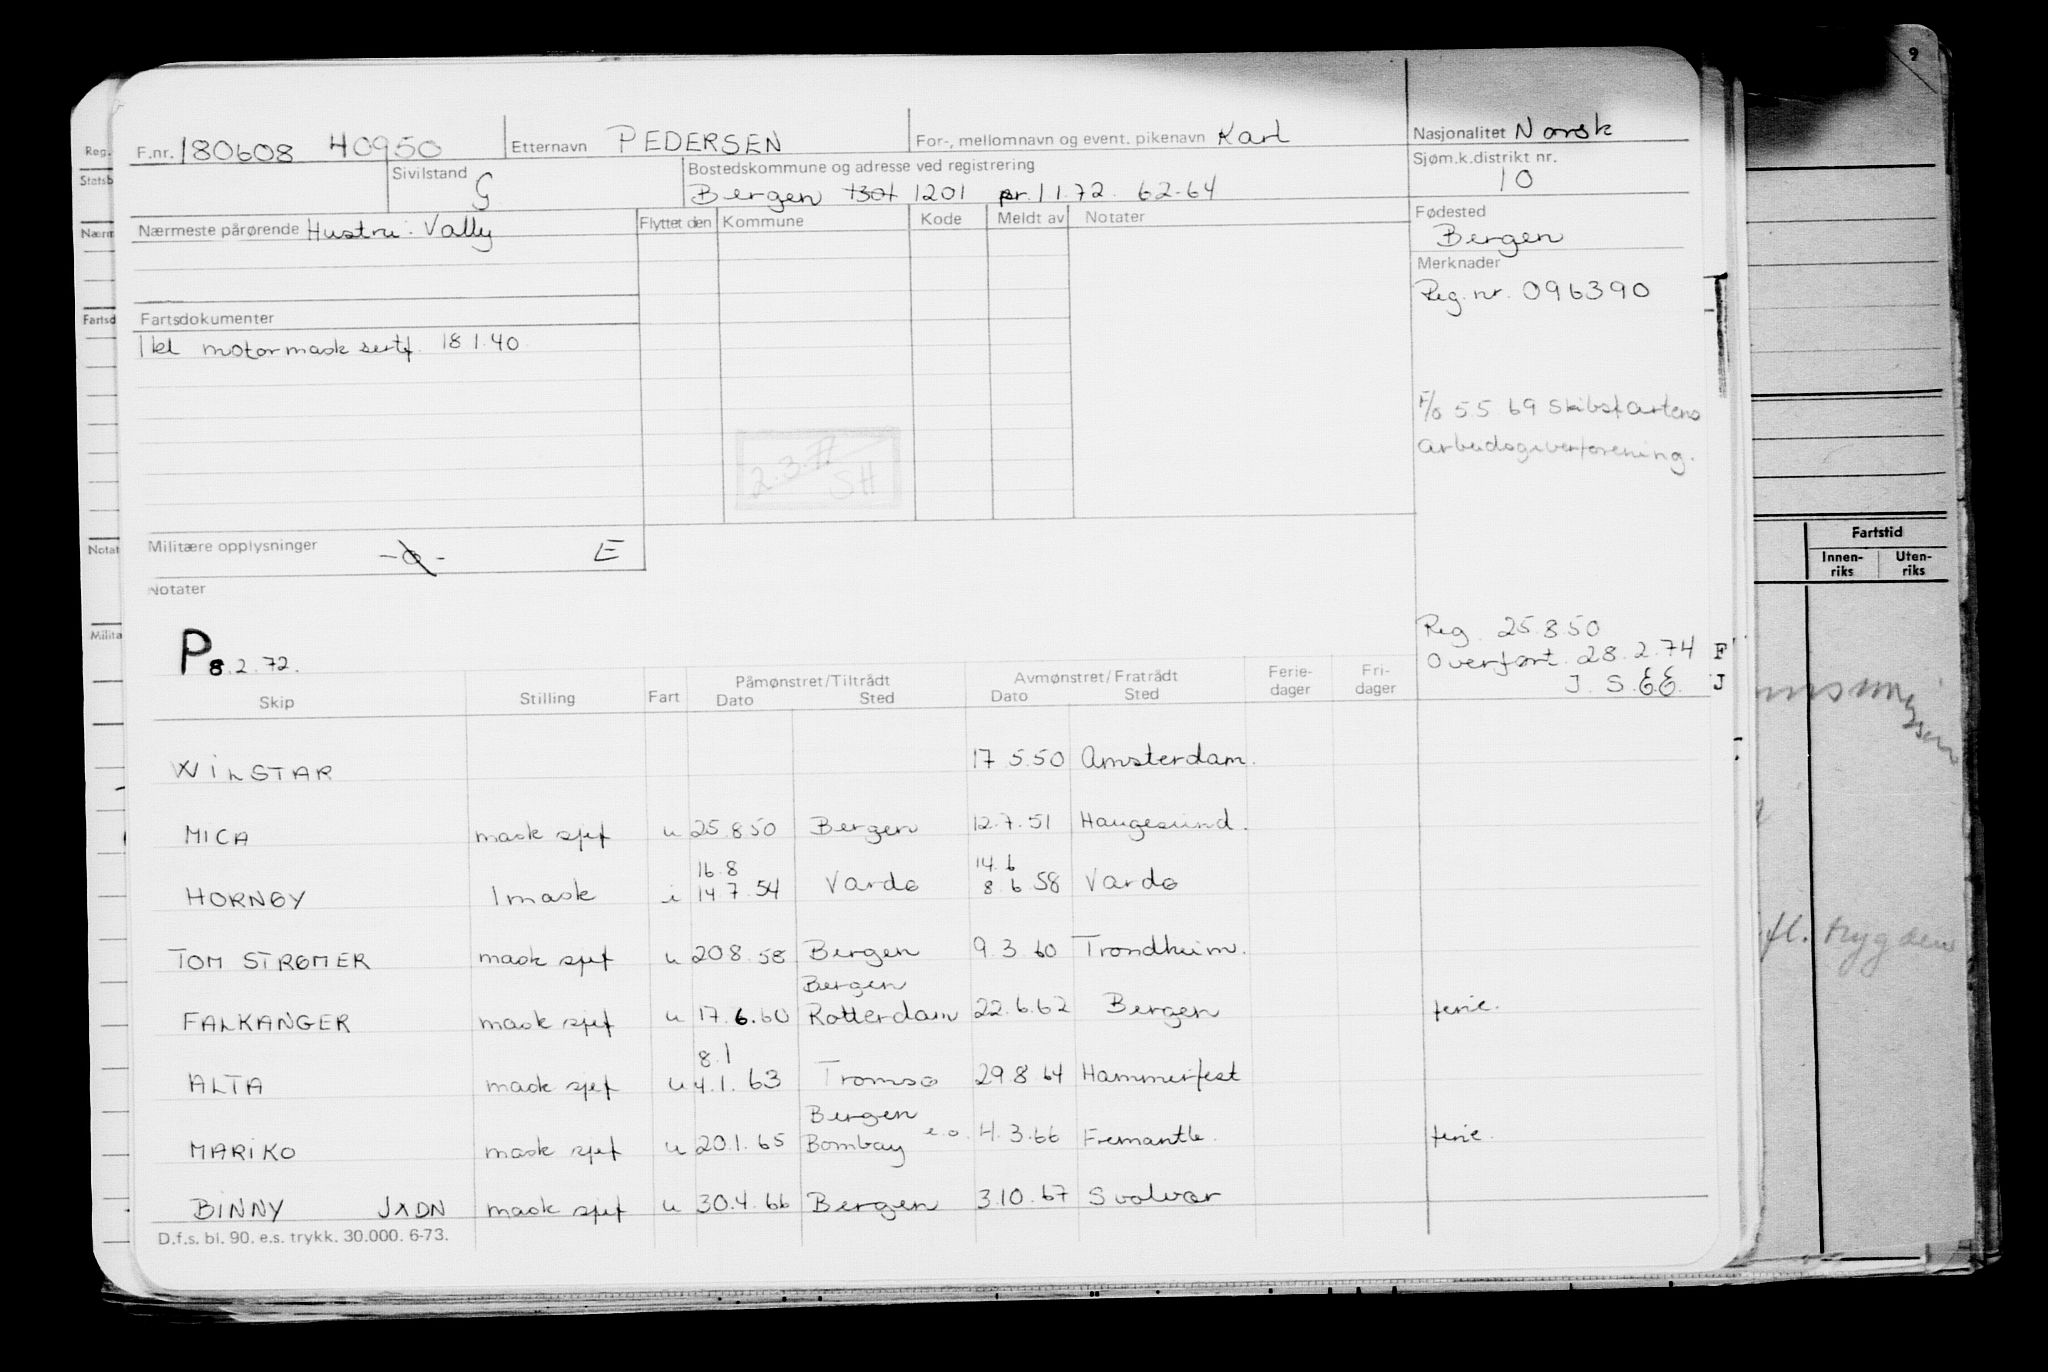 F.nr. 180608 40950 Etternavn PEDERSEN For-, mellomnavn og event. pikenavn Karl Nasjonalitet Norsk
Sivilstand G Bostedskommune og adresse ved registrering Sjøm.k.distrikt nr.
Bergen 1301 1201 pr. 1 1.72. 62-64 10
Nærmeste pårørende Hustru: Vally Flyttet den Kommune Kode Meldt av Notater Fødested
Bergen
Merknader
Reg. nr. 096390
Fartsdokumenter
1 kl motormask sertf. 18 1.40
F/o 5.5.69 Skibsfartens
arbeidsgiverforening.
2.3.77
SH
Militære opplysninger -o- E
Notater
P 8.2.72.
Reg. 25.8.50
Overført. 28.2.74 F
J. S.E.E. J
Skip Stilling Fart Påmønstret/Tiltrådt Dato Sted Avmønstret/Fratrådt Dato Sted Ferie-dager Fri-dager
WILSTAR 17 5.50 Amsterdam.
MICA mask sjef u 25.8 50 Bergen 12.7.51 Haugesund.
16.8 14.6
HORNØY 1 mask i 14.7.54 Vardø 8.6.58 Vardø
TOM STRØMER mask sjef u 20 8.58 Bergen 9.3.60 Trondheim.
Bergen
FALKANGER mask sjef u 17.6.60 Rotterdam 22.6.62 Bergen ferie.
8.1
ALTA mask sjef u 4.1.63 Tromsø 29.8 64 Hammerfest
Bergen
MARIKO mask sjef u 20.1.65 Bombay e.o. 4.3.66 Fremantle. ferie.
BINNY JXDN mask sjef u 30.4.66 Bergen 3.10.67 Svolvær
D.f.s. bl. 90. e.s. trykk. 30.000. 6-73.
Reg.
Statsb
Nærm
Fartsd
Notat
Milita
9
Fartstid
Innen-riks Uten-riks
fl. trygden